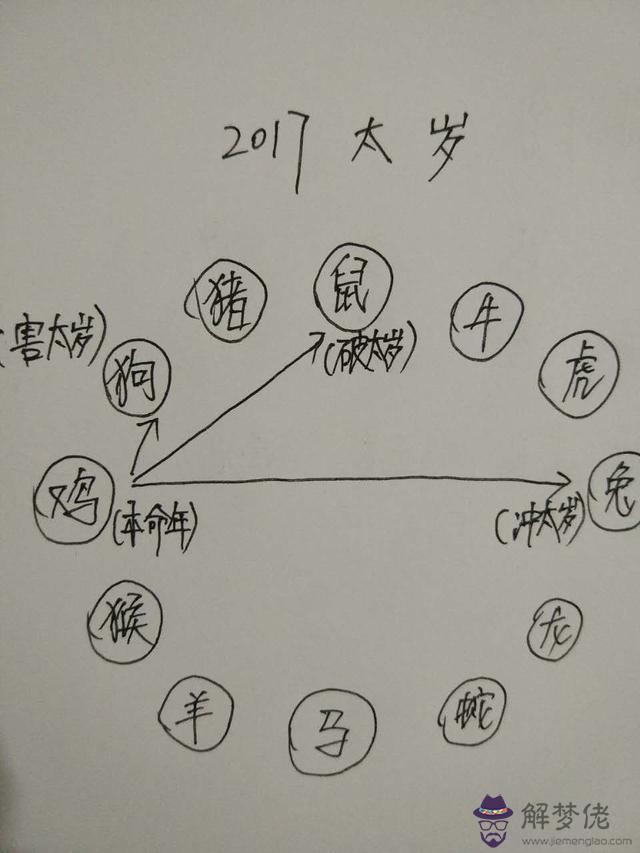 2017 太岁
猪
鼠
牛
(害太岁)
狗
(破太岁)
虎
鸡
(本命年)
(冲太岁)
兔
猴
龙
羊
马
蛇
解梦佬
www.jiemenglao.com